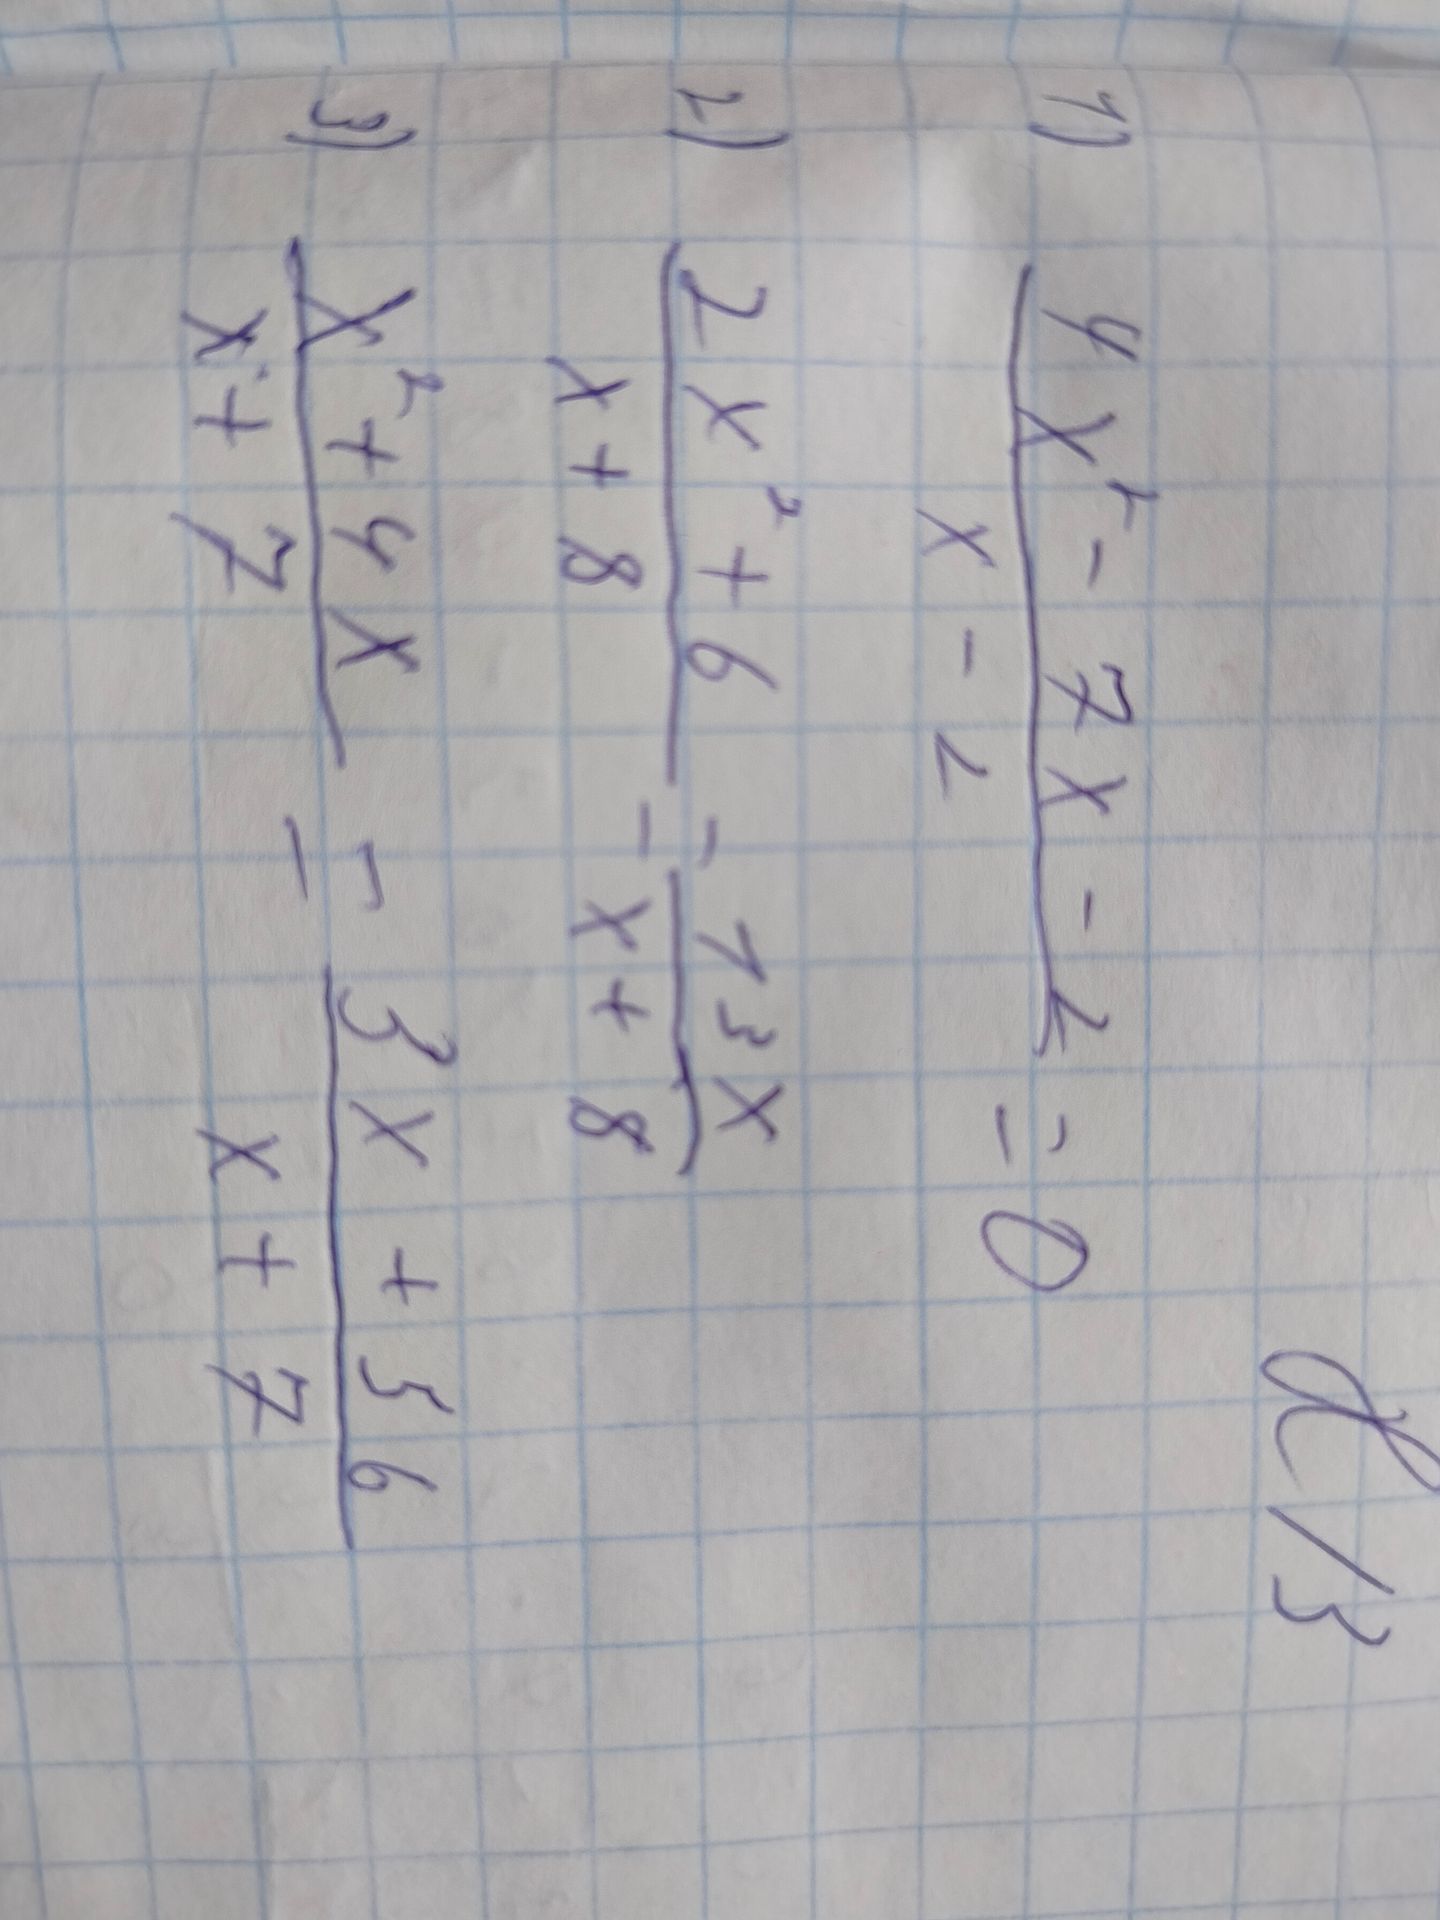 Д/З
1) (4x² - 7x - 2)/(x - 2) = 0
2) (2x² + 6)/(x + 8) = 13x/(x + 8)
3) (x² + 4x)/(x + 7) = (3x + 56)/(x + 7)